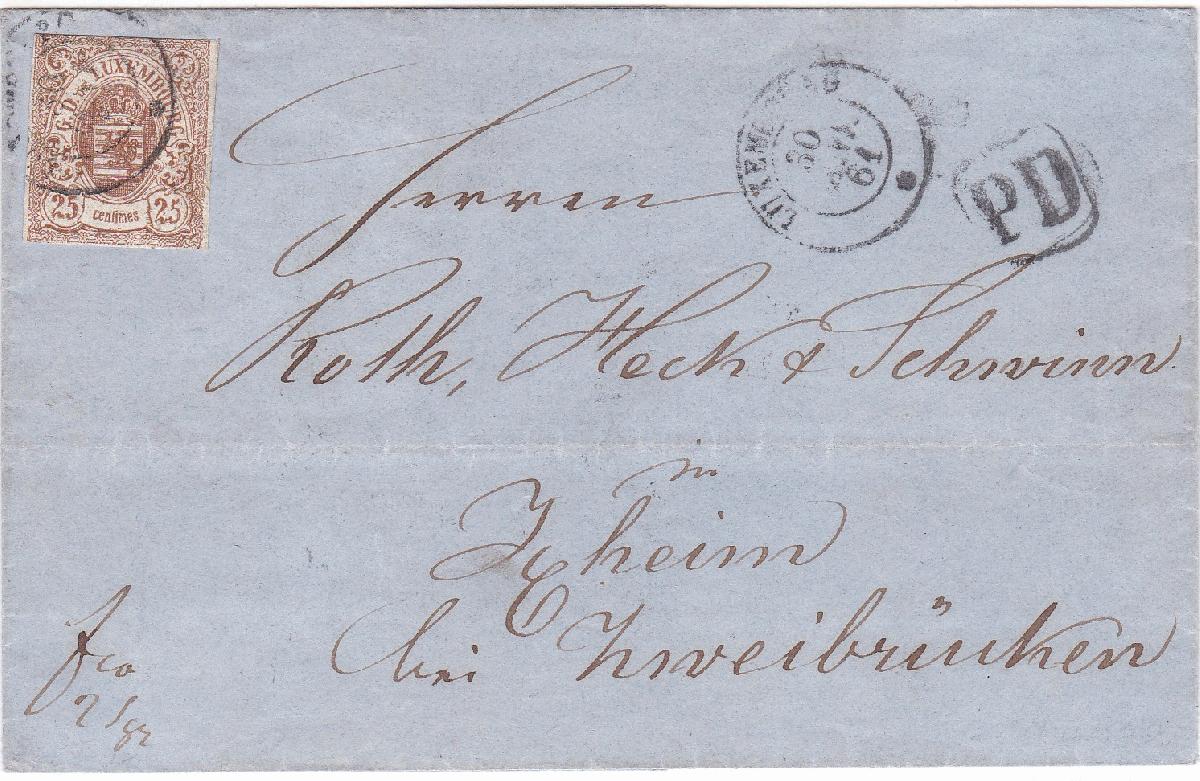 G.D. DE LUXEMBOURG
25 centimes 25
LUXEMBOURG
19
PD
Herren
Roth, Heck & Schwinn
in
Ixheim
bei Zweibrücken
fco